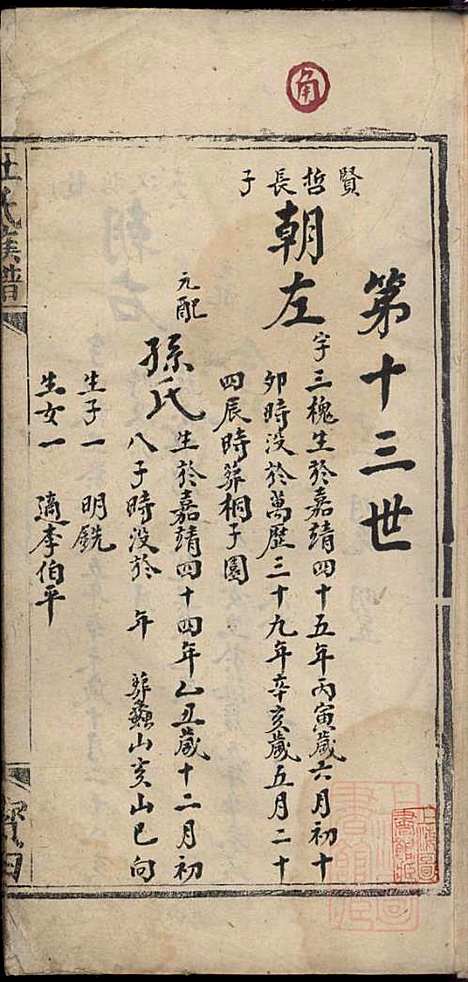 角
第十三世
賢哲長子
朝左
字三槐生於嘉靖四十五年丙寅歲六月初十
卯時没於萬歷三十九年辛亥歲五月二十
四辰時葬桐子園
元配
孫氏
生於嘉靖四十四年乙丑歲十二月初
八子時没於 年 葬螽山亥山巳向
生子一 明銑
生女一 適李伯平
杜氏族譜
上海圖書館藏